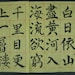 白日依山
盡黃河入
海流欲窮
千里目更